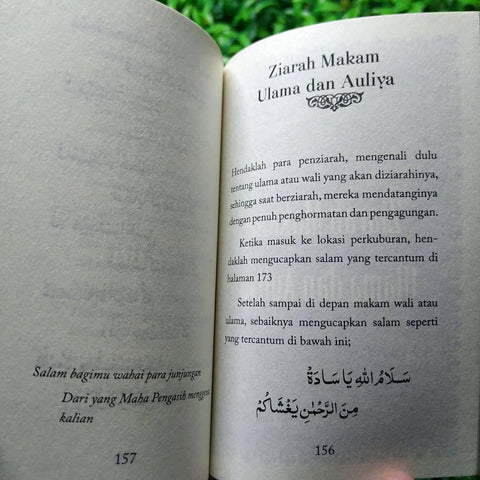 Ziarah Makam
Ulama dan Auliya
Hendaklah para penziarah, mengenali dulu
tentang ulama atau wali yang akan diziarahinya,
sehingga saat berziarah, mereka mendatanginya
dengan penuh penghormatan dan pengagungan.
Ketika masuk ke lokasi perkuburan, hen-
daklah mengucapkan salam yang tercantum di
halaman 173
Setelah sampai di depan makam wali atau
ulama, sebaiknya mengucapkan salam seperti
yang tercantum di bawah ini;
سَلَامُ اللهِ يَا سَادَةْ
مِنَ الرَّحْمٰنِ يَغْشَاكُمْ
156
Salam bagimu wahai para junjungan
Dari yang Maha Pengasih
kalian
157